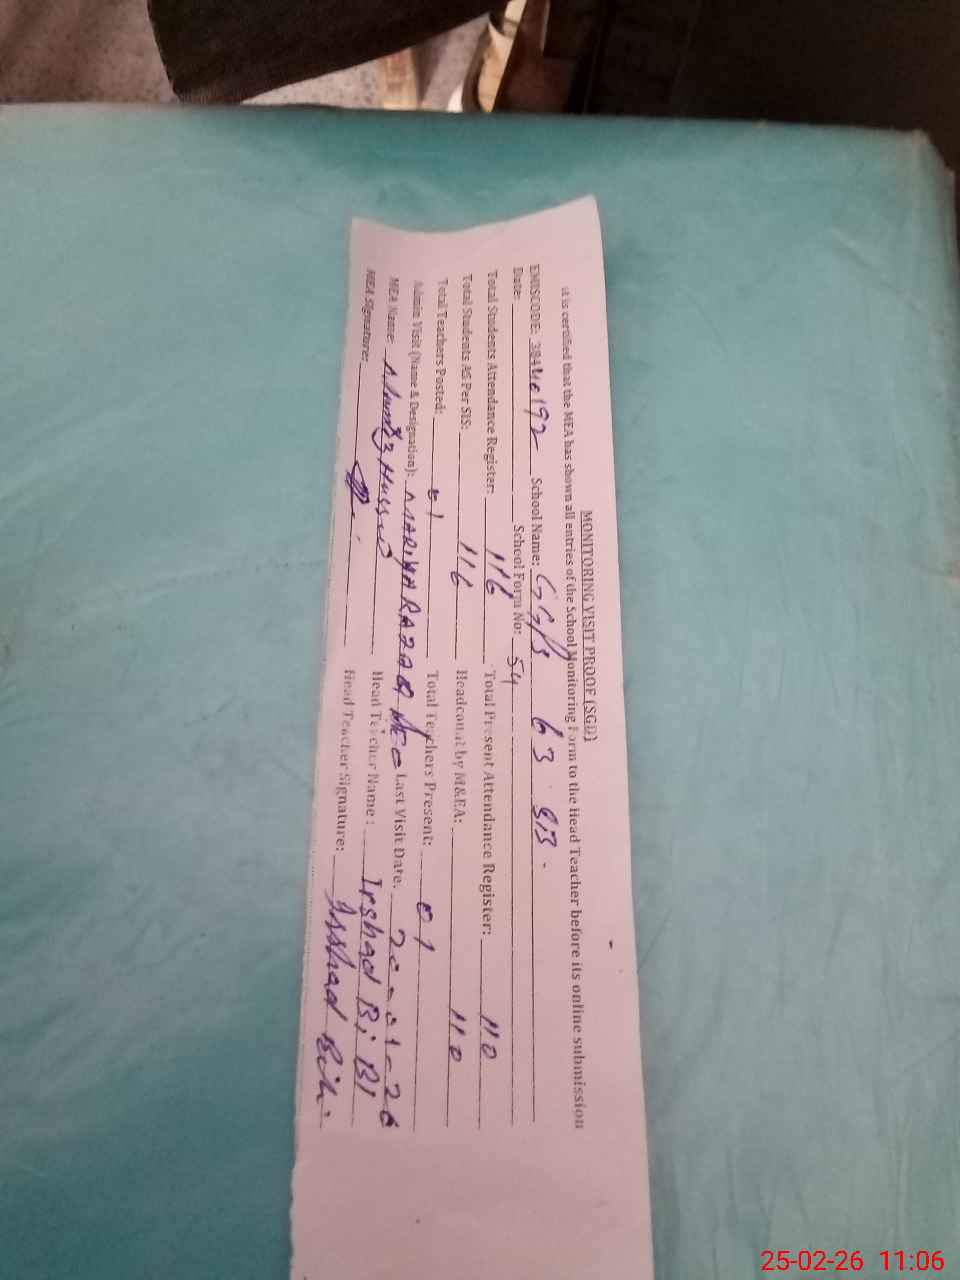 MONITORING VISIT PROOF (SGD)
It is certified that the MEA has shown all entries of the School Monitoring Form to the Head Teacher before its online submission
EMISCODE: 38440192 School Name: GGPS 63 SB.
Date: School Form No: 54
Total Students Attendance Register: 116 Total Present Attendance Register: 110
Total Students AS Per SIS: 116 Headcount by M&EA: 110
Total Teachers Posted: 01 Total Teachers Present: 01
Admin Visit (Name & Designation): MARIYA RAZAQ AEO Last Visit Date: 20-01-26
MEA Name: Hussain Head Teacher Name: Irshad BiBI
MEA Signature: Head Teacher Signature: Irshad Bibi
25-02-26 11:06